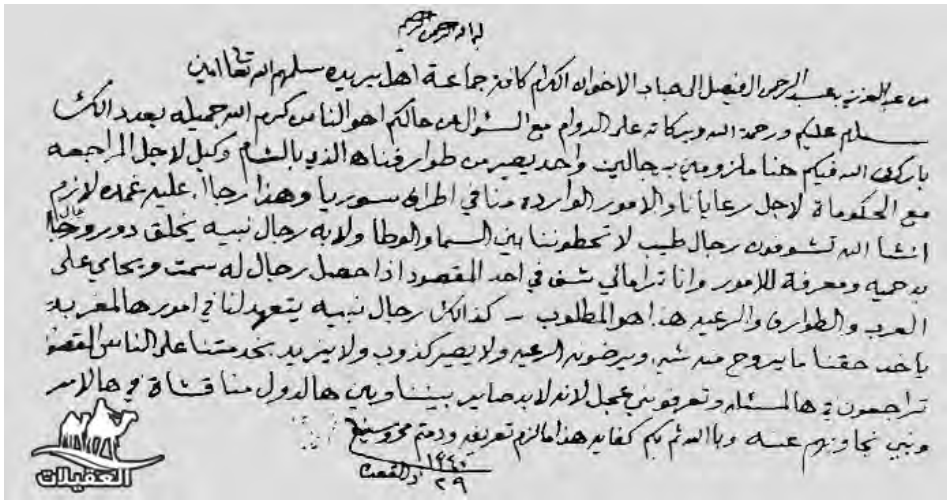 بسم الله الرحمن الرحيم
من عبدالعزيز بن عبدالرحمن الفيصل الى جناب الاخوان الكرام كافة جماعة اهل بريده سلمهم الله تعالى امين
سلام عليكم ورحمة الله وبركاته على الدوام مع السؤال عن حالكم احوالنا من كرم الله جميله بعد ذالك
بارك الله فيكم حنا ملزومين برجالين واحد يصير من طوارفنا هالذي بالشام وكيل لاجل المراجعه
مع الحكومات لاجل رعايانا والامور الوارده منا في اطراف سوريا وهذا رجاا عليه عمده لازم
انشا الله تشوفون رجال طيب لا تحطوننا بين السما والوطا ولابه رجال نبيه يخلق دور وجا
به حميه ومعرفة للامور وانا ترامالي شف في احد المقصود اذا حصل رجال له سمت ويحامي على
العرب والطوارف والرعيه هذا هو المطلوب - كذالك رجال نبيه يتعهد لنا في امور هالمغربيه
ياخذ حقنا ما يروح منه شي ويرضون الرعيه ولا يصير كذوب ولا يزيد بخدمتنا على الناس المقصد
تراجعون في هالمسئله وتعرفوني عجل لانه لابد صاير بيننا وبين هالدول مناقشاة في هالامر
ونبي نجاوبهم عنه وباالله ثم بكم كفايه هذا مالزم تعريفه ودمتم محروسين
١٣٤٠
٢٩ ذالقعدت
العقيلات